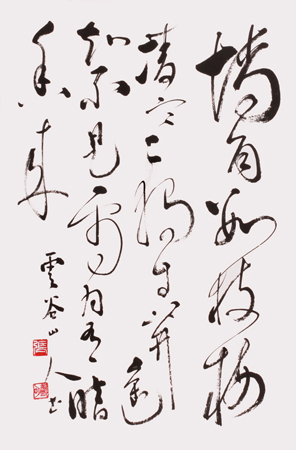 墙角數枝梅
凌寒獨自開遥
知不是雪為有暗
香來
雲谷山人书